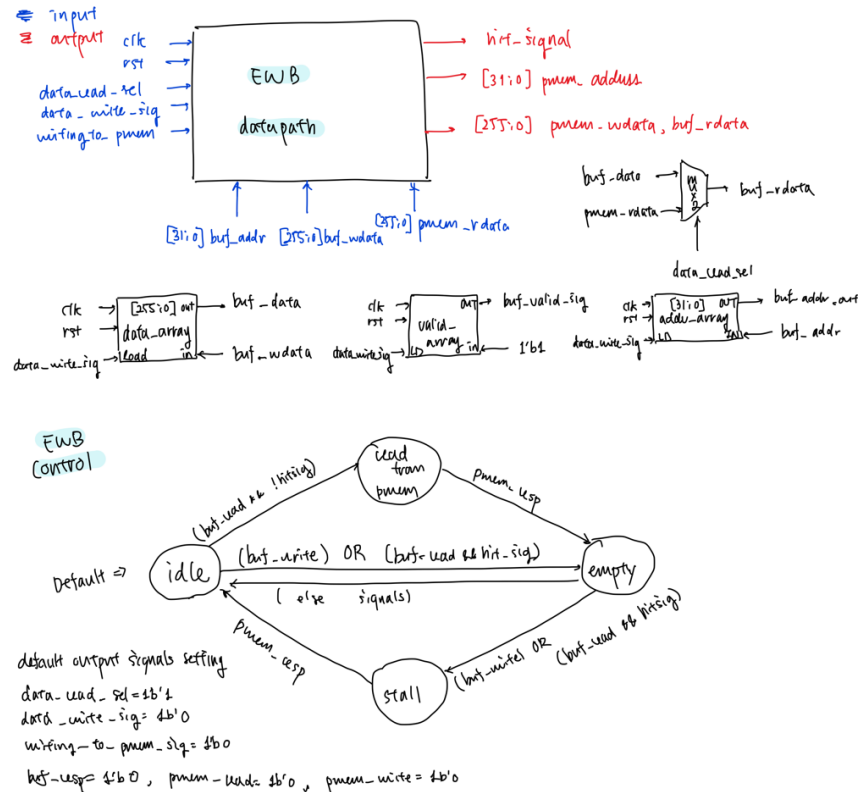 input
output
clk
rst
data_read_sel
data_write_sig
writing_to_pmem
EWB
datapath
hit_signal
[31:0] pmem_address
[255:0] pmem_wdata, buf_rdata
[31:0] buf_addr
[255:0] buf_wdata
[255:0] pmem_rdata
buf_data
pmem_rdata
buf_rdata
data_read_sel
clk
rst
data_write_sig
[255:0] out
data_array
load in
buf_data
buf_wdata
clk
rst
data_write_sig
OUT
valid_
array
LD in
buf_valid_sig
1'b1
clk
rst
data_write_sig
[31:0] OUT
addr_array
LD IN
buf_addr_out
buf_addr
EWB
Control
read
from
pmem
(buf_read && !hitsig)
pmem_resp
Default =>
idle
(buf_write) OR (buf_read && hit_sig)
( else signals)
empty
pmem_resp
stall
(buf_write) OR
(buf_read && hitsig)
default output signals setting
data_read_sel = 1b'1
data_write_sig = 1b'0
writing_to_pmem_sig = 1'b0
buf_resp = 1'b0, pmem_read = 1b'0, pmem_write = 1b'0